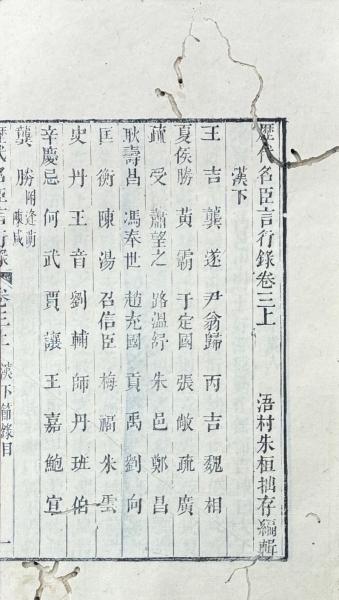 歷代名臣言行錄卷三上
浯村朱桓拙存編輯
漢下
王吉 龔遂 尹翁歸 丙吉 魏相
夏侯勝 黃霸 于定國 張敞 疏廣
疏受 蕭望之 路溫舒 朱邑 鄭昌
耿壽昌 馮奉世 趙充國 貢禹 劉向
匡衡 陳湯 召信臣 梅福 朱雲
史丹 王音 劉輔 師丹 班伯
辛慶忌 何武 賈讓 王嘉 鮑宣
龔勝 附逢萌 陳咸
歷代名臣言行錄 卷三上 漢下 目 一